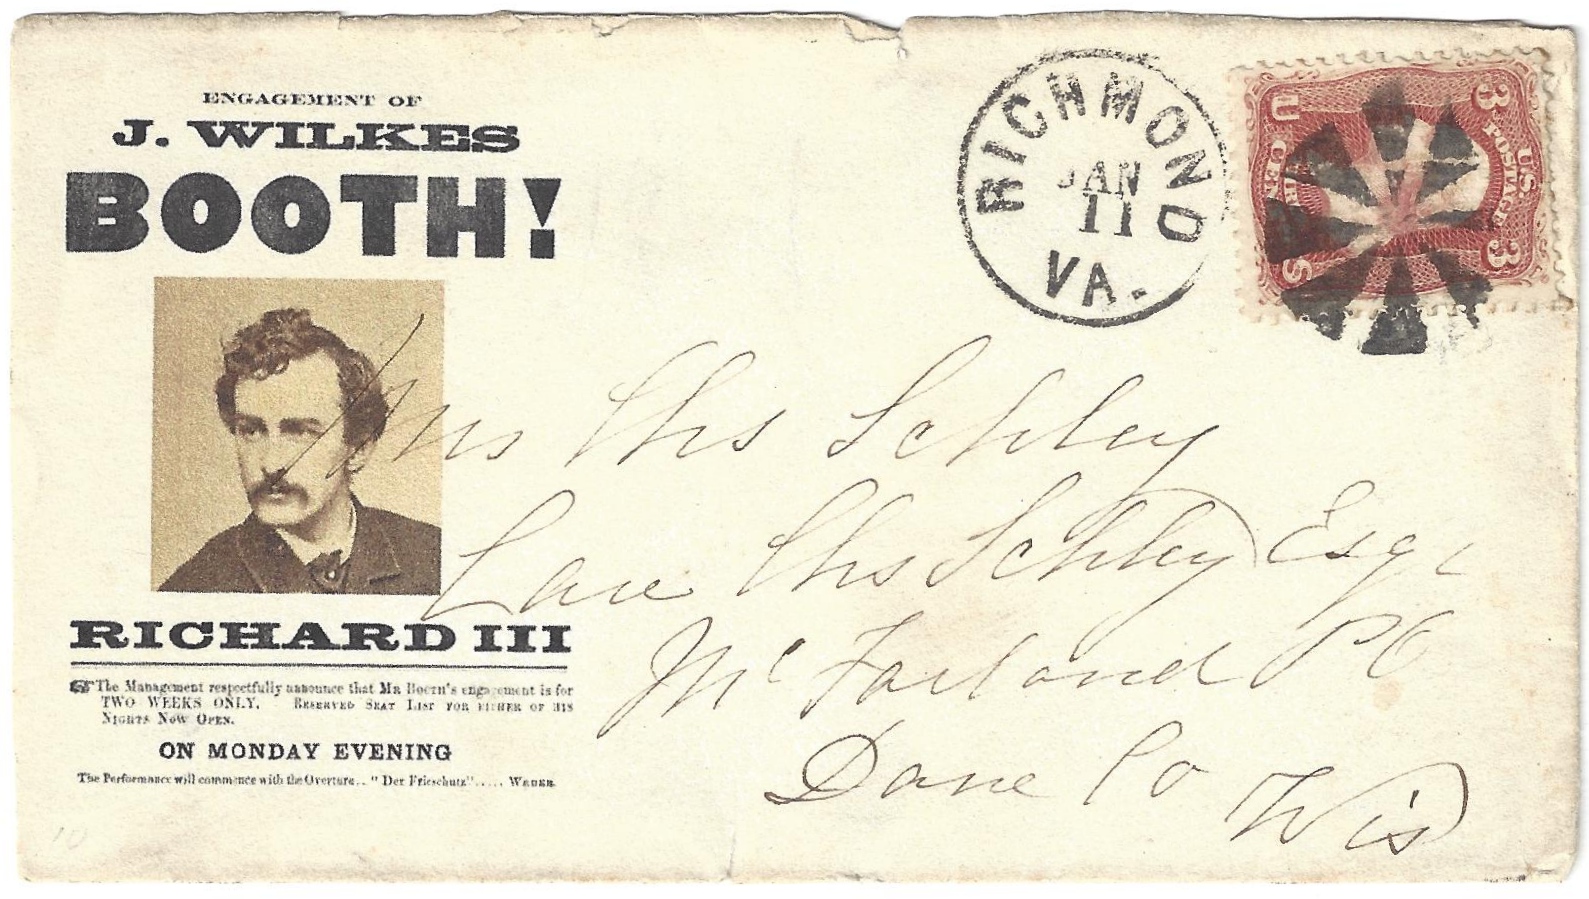 ENGAGEMENT OF
J. WILKES
BOOTH!
RICHARD III
The Management respectfully announce that MR BOOTH'S engagement is for
TWO WEEKS ONLY. RESERVED SEAT LIST FOR EITHER OF HIS
NIGHTS NOW OPEN.
ON MONDAY EVENING
The Performance will commence with the Overture.. "Der Frieschutz"..... WEBER.
RICHMOND
JAN
11
VA.
3
U.S.
POSTAGE
3
U
CEN
S
Mrs Chs Schley
Care Chs Schley Esq,
McFarland PO
Dane Co Wis
10